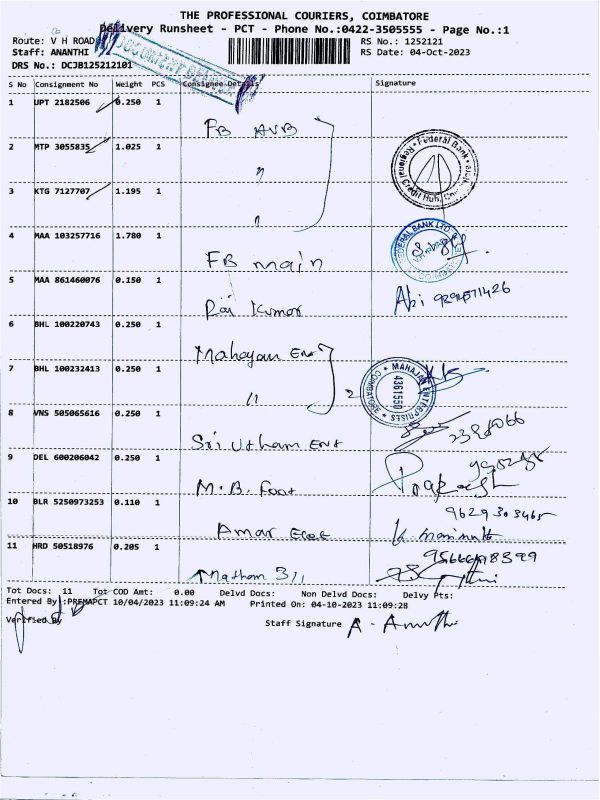 THE PROFESSIONAL COURIERS, COIMBATORE
Delivery Runsheet - PCT - Phone No.:0422-3505555 - Page No.:1
Route: V H ROAD
RS No.: 1252121
Staff: ANANTHI
RS Date: 04-Oct-2023
DRS No.: DCJB125212101
S No Consignment No Weight PCS Consignee Details Signature
1 UPT 2182506 0.250 1 FB AVB
2 MTP 3055835 1.025 1 "
Federal Bank
3 KTG 7127707 1.195 1 "
4 MAA 103257716 1.780 1 FB main
FEDERAL BANK LTD
5 MAA 861460076 0.150 1 Raj Kumar Abi
6 BHL 100220743 0.250 1 Mahajan Ent
7 BHL 100232413 0.250 1 " 2
MAHAJAN ENTERPRISES
4361550
COIMBATORE
8 VNS 505065616 0.250 1 Sri Utham Ent
9 DEL 600206042 0.250 1 M.B. Foot Prakash
10 BLR 5250973253 0.110 1 Amar Elec
11 HRD 50518976 0.205 1
Tot Docs: 11 Tot COD Amt: 0.00 Delvd Docs: Non Delvd Docs: Delvy Pts:
Entered By :PREMAPCT 10/04/2023 11:09:24 AM Printed On: 04-10-2023 11:09:28
Verified By
Staff Signature